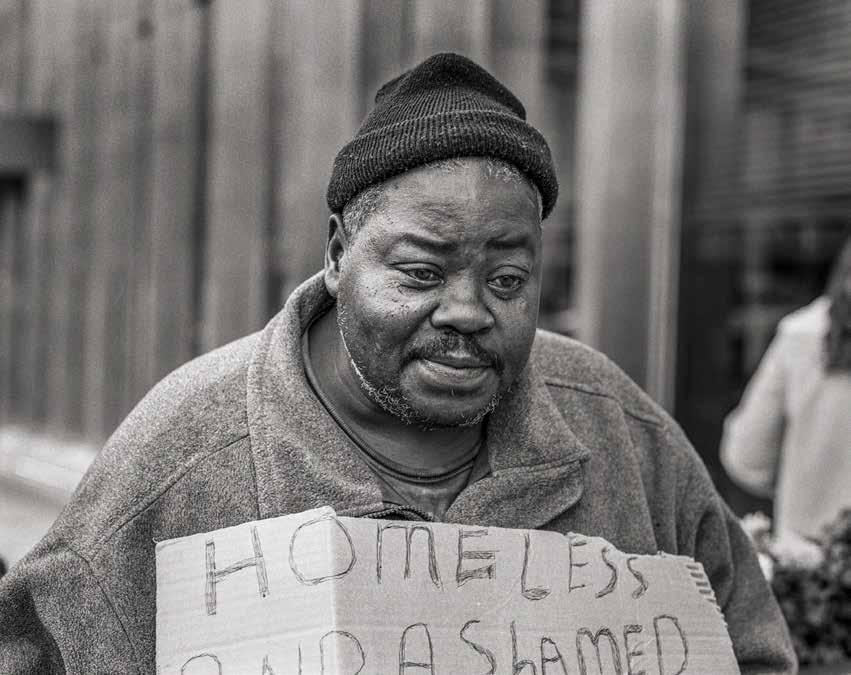 HOMELESS
AND ASHAMED